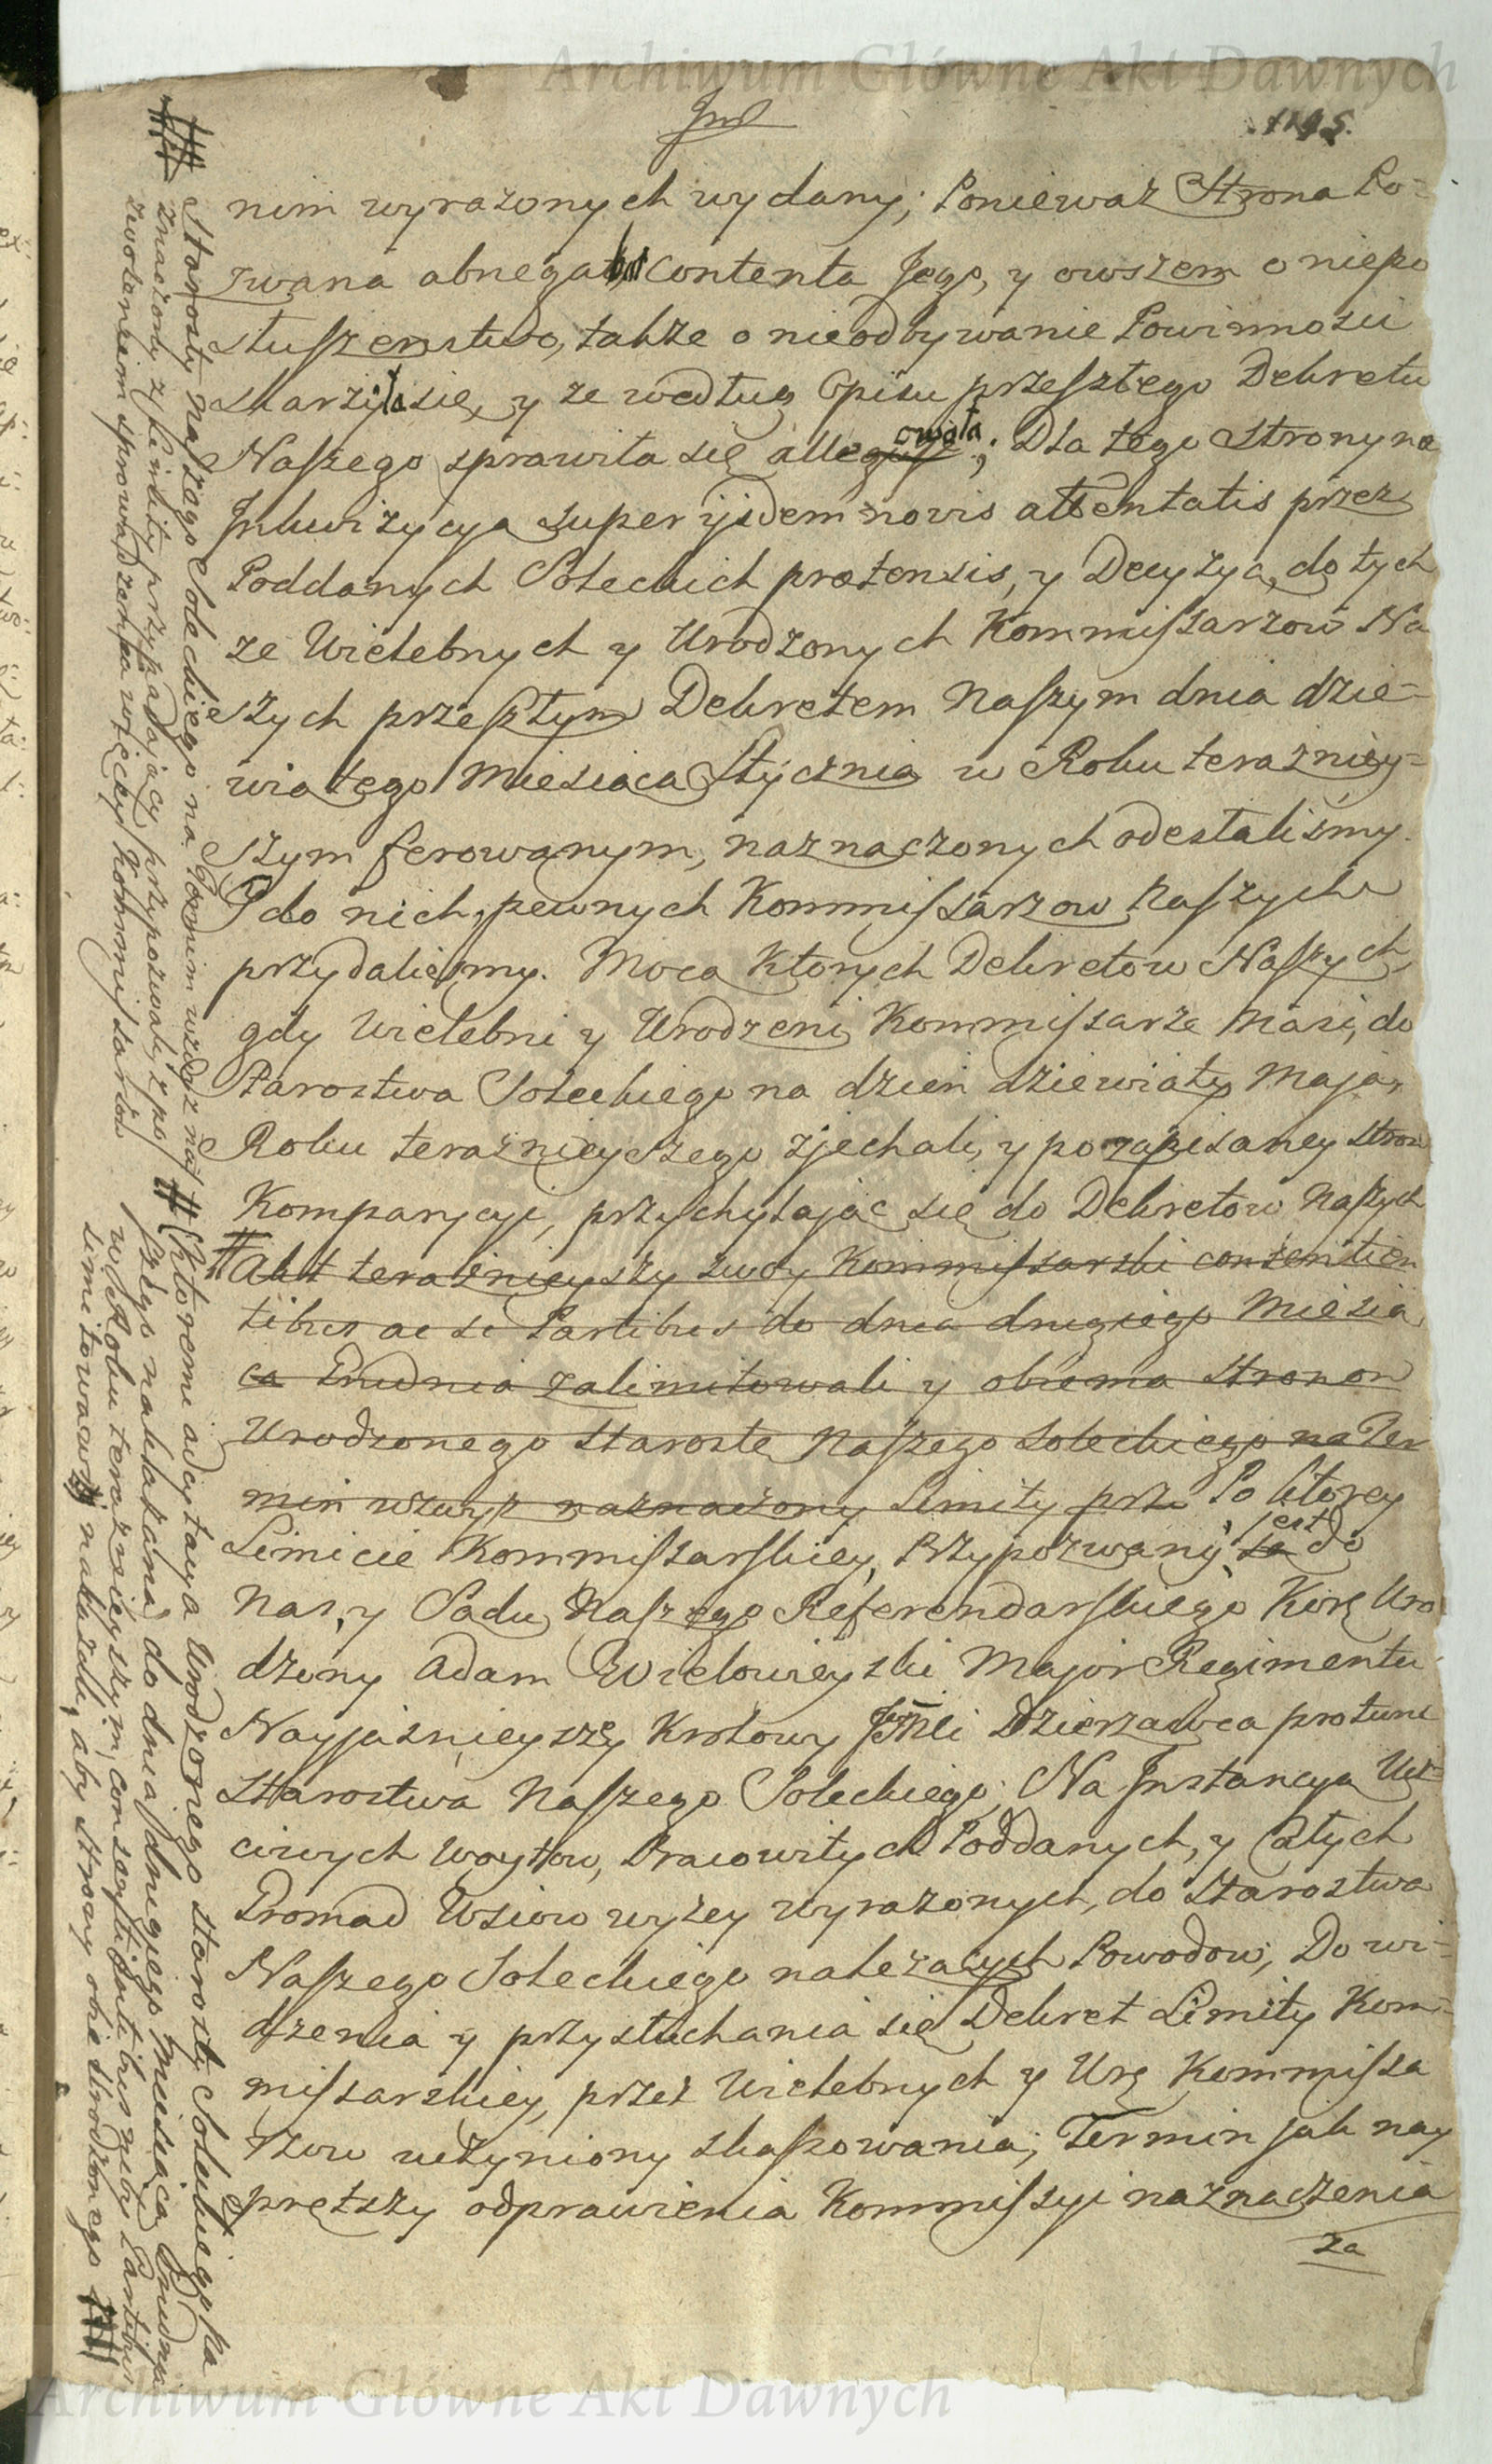 Archiwum Główne Akt Dawnych
1145.
nim wyrazonych wydany; Poniewaz Strona Po-
zwana abnegat Contenta Jego, y owszem o niepo
słuszenstwo, takze o nieodbywanie Powinnosci
skarzyła się, y ze według Opisu przeszłego Dekretu
Naszego sprawiła się allegowała; Dla tego Strony na
Inkwizycyą super ijsdem novis attentatis przez
Poddanych Soleckich prætensis, y Decyzyą, do tych
ze Wielebnych y Urodzonych Kommissarzow Na
szych przeszłym Dekretem Naszym dnia dzie-
wiątego Miesiąca Stycznia w Roku teraznięy-
szym ferowanym, naznaczonych odesłaliśmy.
I do nich, pewnych Kommissarzow Naszych
przydaliśmy. Mocą Ktorych Dekretow Naszych,
gdy Wielebni y Urodzeni Kommissarze Nasi, do
Starostwa Soleckiego na dzien dziewiąty Maja,
Roku teraznieyszego zjechali, y po zapisaney stron
Komparycyi, przychylając się do Dekretow Naszych
Akt teraznieyszy swoy Kommissarski consentien
tibus ac se Partibus do dnia drugiego Miesią
ca Grudnia zalimitowali y obiema Stronom
Urodzonego Starostę Naszego Soleckiego na Ter
min wzwyz naznaczony Limity prze Po ktorey
Limicie Kommissarskiey, Przypozwany są jest do
Nas, y Sądu Naszego Referendarskiego Kor: Uro
dzony Adam Wielowieyski Major Regimentu
Nayjasnieyszey Krolowy Jeymci Dzierzawca protunc
Starostwa Naszego Soleckiego; Na Instancyą Ucz-
ciwych Woytow, Pracowitych Poddanych, y Całych
Gromad Wsiow wyzey wyrazonych, do Starostwa
Naszego Soleckiego nalezących Powodow; Do wi-
dzenia y przysłuchania się Dekret Limity Kom-
missarskiey, przez Wielebnych y Ur: Kommissa
rzow uczyniony skassowania; Termin jak nay
prętszy odprawienia Kommissyi naznaczenia
za
Starosty naszego Soleckiego na Termin wzwyz na
znaczony z Limity przypadający przypozwali, z po
zwoleniem sprowadzenia więcey Kommissarzow
Ktoremi adcytacya Urodzonego Starosty Soleckiego ka
szego nakazana, do dnia drugiego Miesiąca Grudnia
w Roku teraznieyszym, consentientibus Partibus
limitowawszy nakazali, aby strony obie
Archiwum Główne Akt Dawnych